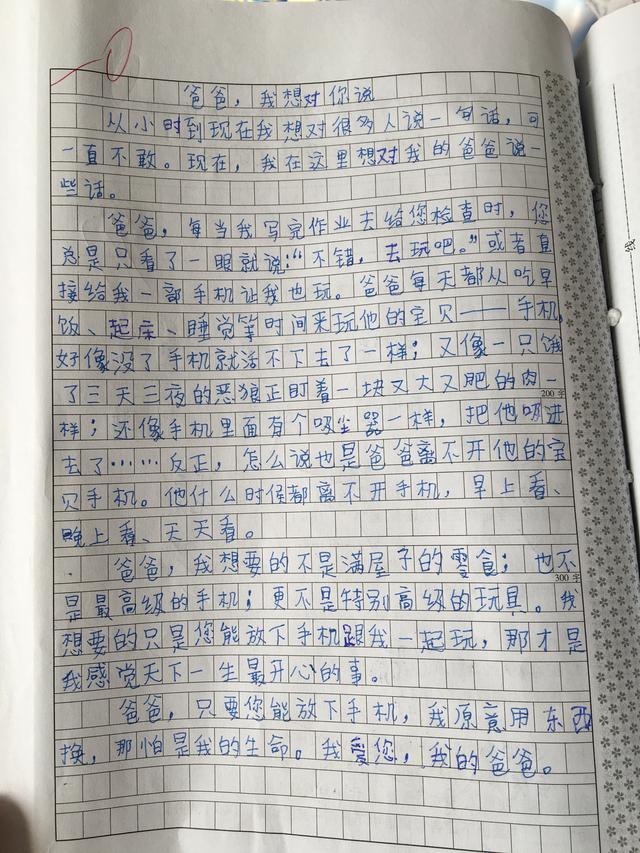 爸爸，我想对你说
从小时到现在我想对很多人说一句话，可
一直不敢。现在，我在这里想对我的爸爸说一
些话。
爸爸，每当我写完作业去给您检查时，您
总是只看了一眼就说：“不错，去玩吧。”或者直
接给我一部手机让我也玩。爸爸每天都从吃早
饭、起床、睡觉等时间来玩他的宝贝——手机，
好像没了手机就活不下去了一样；又像一只饿
了三天三夜的恶狼正盯着一块又大又肥的肉一
200字
样；还像手机里面有个吸尘器一样，把他吸进
去了……反正，怎么说也是爸爸离不开他的宝
贝手机。他什么时候都离不开手机，早上看、
晚上看、天天看。
爸爸，我想要的不是满屋子的零食；也不
300字
是最高级的手机；更不是特别高级的玩具。我
想要的只是您能放下手机跟我一起玩，那才是
我感觉天下一生最开心的事。
爸爸，只要您能放下手机，我原意用东西
换，那怕是我的生命。我爱您，我的爸爸。
线